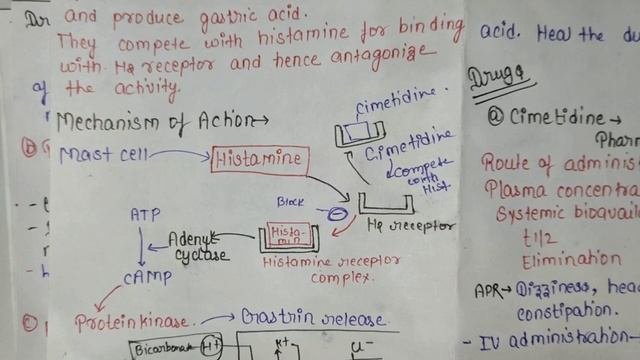 and produce gastric acid.
They compete with histamine for binding
with H2 receptor and hence antagonize
the activity.
Mechanism of Action→
Mast cell → Histamine
cimetidine.
Cimetidine
compete
with
Hist.
Block
H2 receptor
ATP
Adenyl
cyclase
Hista-
min
cAMP
Histamine receptor
complex.
Protein kinase. → Gastrin release
Bicarbonate H+
K+
acid. Heal the du
Drugs
@ Cimetidine →
Pharm
Route of adminis
Plasma concentra
Systemic bioavail
t1/2
Elimination
ADR→ Dizziness, head
constipation.
- IV administration-